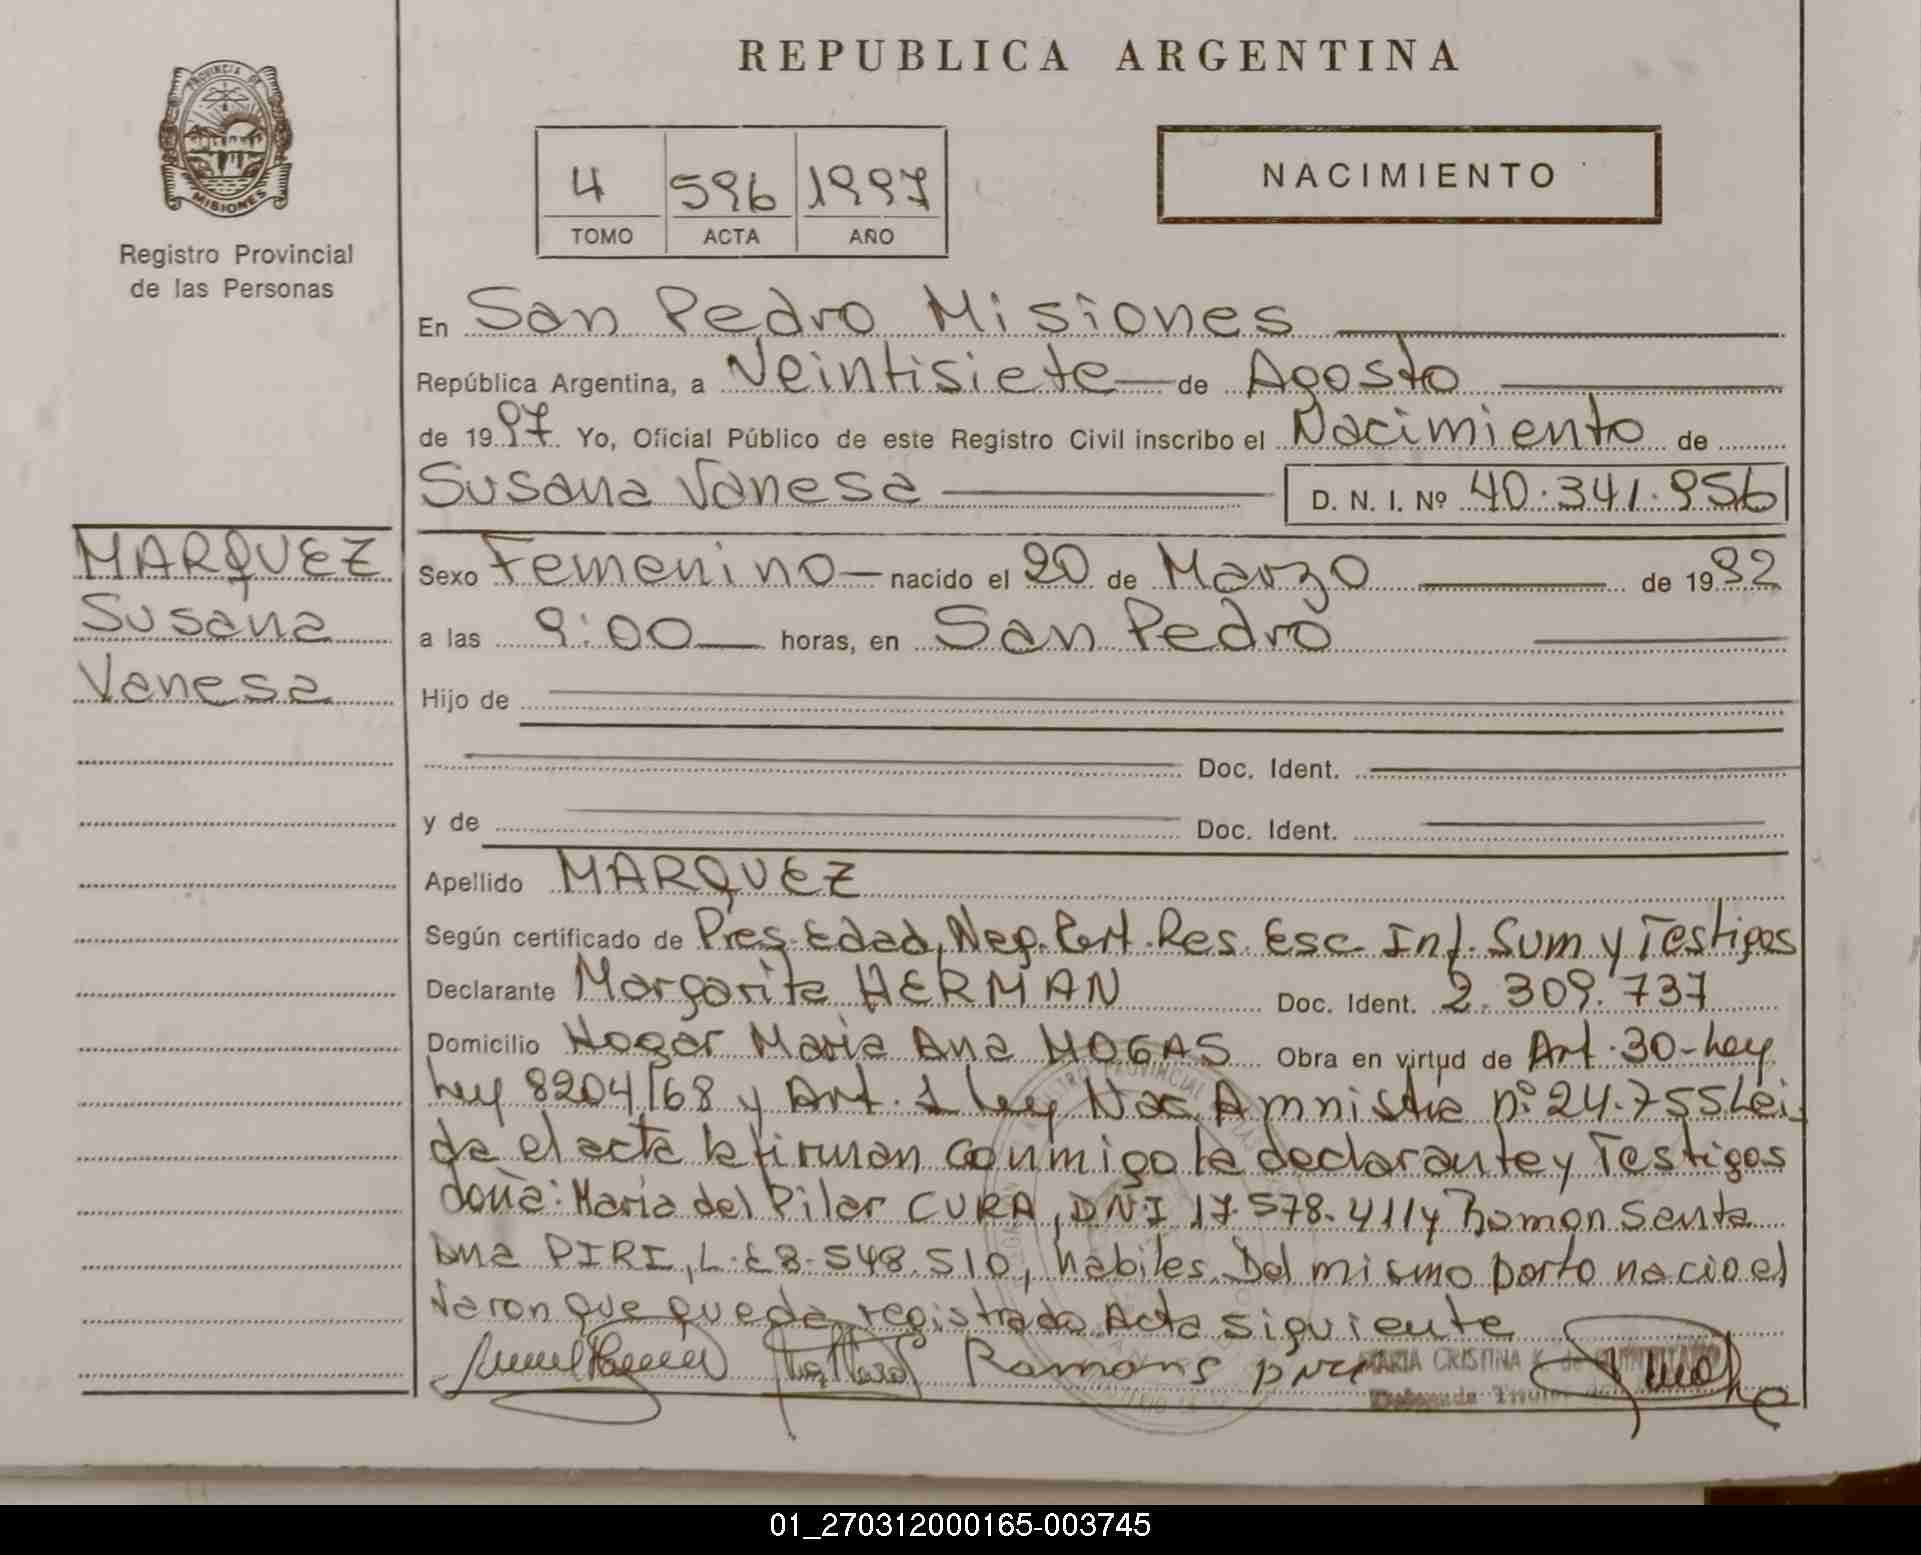 REPUBLICA ARGENTINA
PROVINCIA DE
MISIONES
Registro Provincial
de las Personas
4 596 1997
TOMO ACTA AÑO
NACIMIENTO
En San Pedro Misiones
República Argentina, a Veintisiete de Agosto
de 1997 Yo, Oficial Público de este Registro Civil inscribo el Nacimiento de
Susana Vanesa D. N. I. Nº 40.341.956
MARQUEZ
Susana
Vanesa
Sexo Femenino nacido el 20 de Marzo de 1992
a las 9:00 horas, en San Pedro
Hijo de
Doc. Ident.
y de Doc. Ident.
Apellido MARQUEZ
Según certificado de Pres. Edad, Neg. Cert. Res. Esc. Inf. Sum y Testigos
Declarante Margarita HERMAN Doc. Ident. 2.309.737
Domicilio Hogar Maria Ana MOGAS Obra en virtud de Art. 30-Ley
Ley 8204/68 y Art. 1 Ley Nac Amnistia nº 24.755 Lei-
da el acta la firman conmigo la declarante y Testigos
doña: Maria del Pilar CURA, DNI 17.578.411 y Ramon Santa
Ana PIRI, L.E 8.548.510, habiles. Del mismo parto nacio el
Varon que queda registrado Acta siguiente
Ramons piri
MARIA CRISTINA K. de
01_270312000165-003745